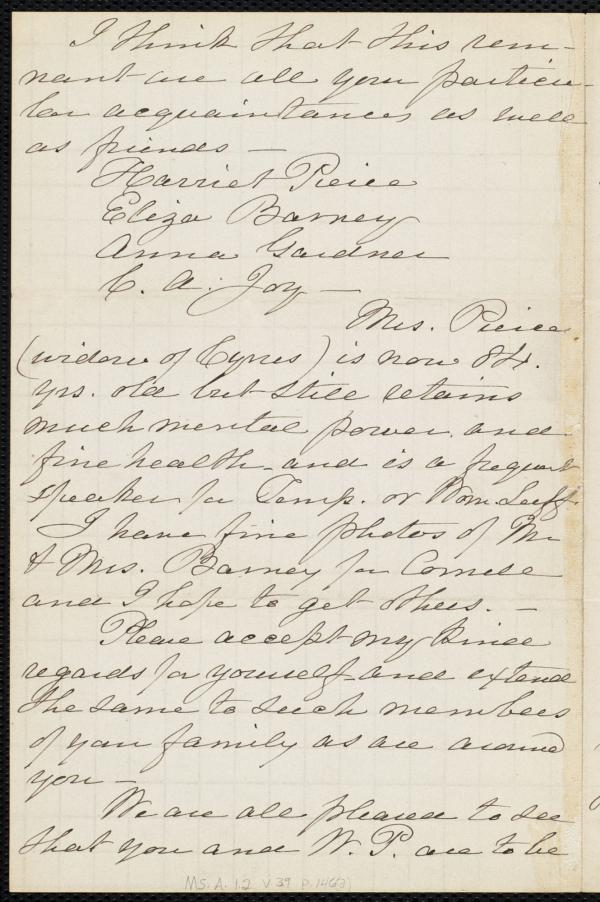 I think that this rem-
nant are all your particu-
lar acquaintances as well
as friends —
Harriet Peirce
Eliza Barney
Anna Gardner
C. A. Joy —
Mrs. Peirce
(widow of Cyrus) is now 84.
yrs. old but still retains
much mental power and
fine health - and is a frequent
speaker for Temp. or Wom. Suff.
I have fine photos of Mr
& Mrs. Barney for Cornell
and I hope to get others. —
Please accept my kind
regards for yourself and extend
the same to such members
of your family as are around
you —
We are all pleased to see
that you and W. P. are to be
MS. A. 1.2 v. 39 p. 146(2)